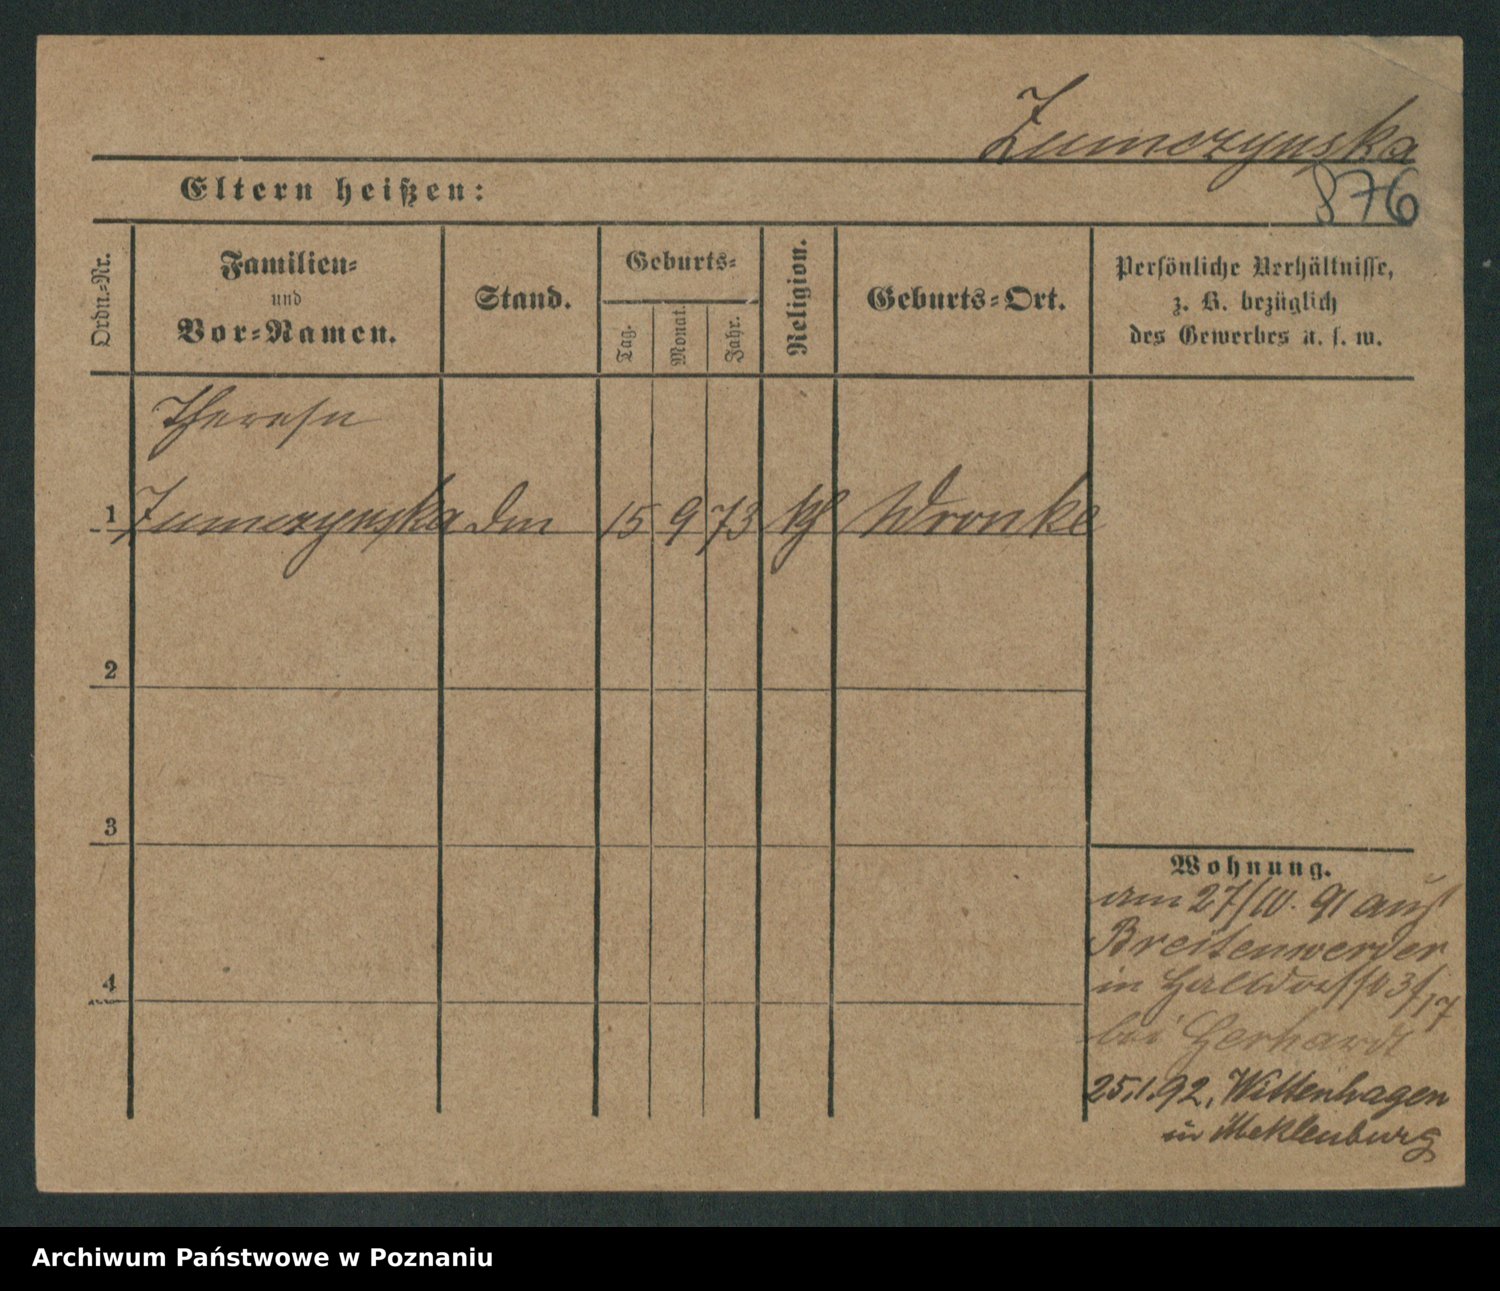 Zumczynska
Eltern heißen:
876
Ordn.-Nr.
Familien-
und
Vor-Namen.
Stand.
Geburts-
Tag.
Monat.
Jahr.
Religion.
Geburts-Ort.
Persönliche Verhältnisse,
z. B. bezüglich
des Gewerbes u. s. w.
Therese
1 Zumczynska 15 9 73 kth Wronke
2
3
4
Wohnung.
am 27/10. 91 aus
Breitenwerder
in Halbdorfstr 17
bei Gerhardt
25.1.92, Wittenhagen
in Meklenburg
Archiwum Państwowe w Poznaniu